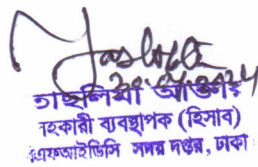 ২০.০৫.২০২৪
তাছলিমা আক্তার
সহকারী ব্যবস্থাপক (হিসাব)
এফআইডিসি সদর দপ্তর, ঢাকা